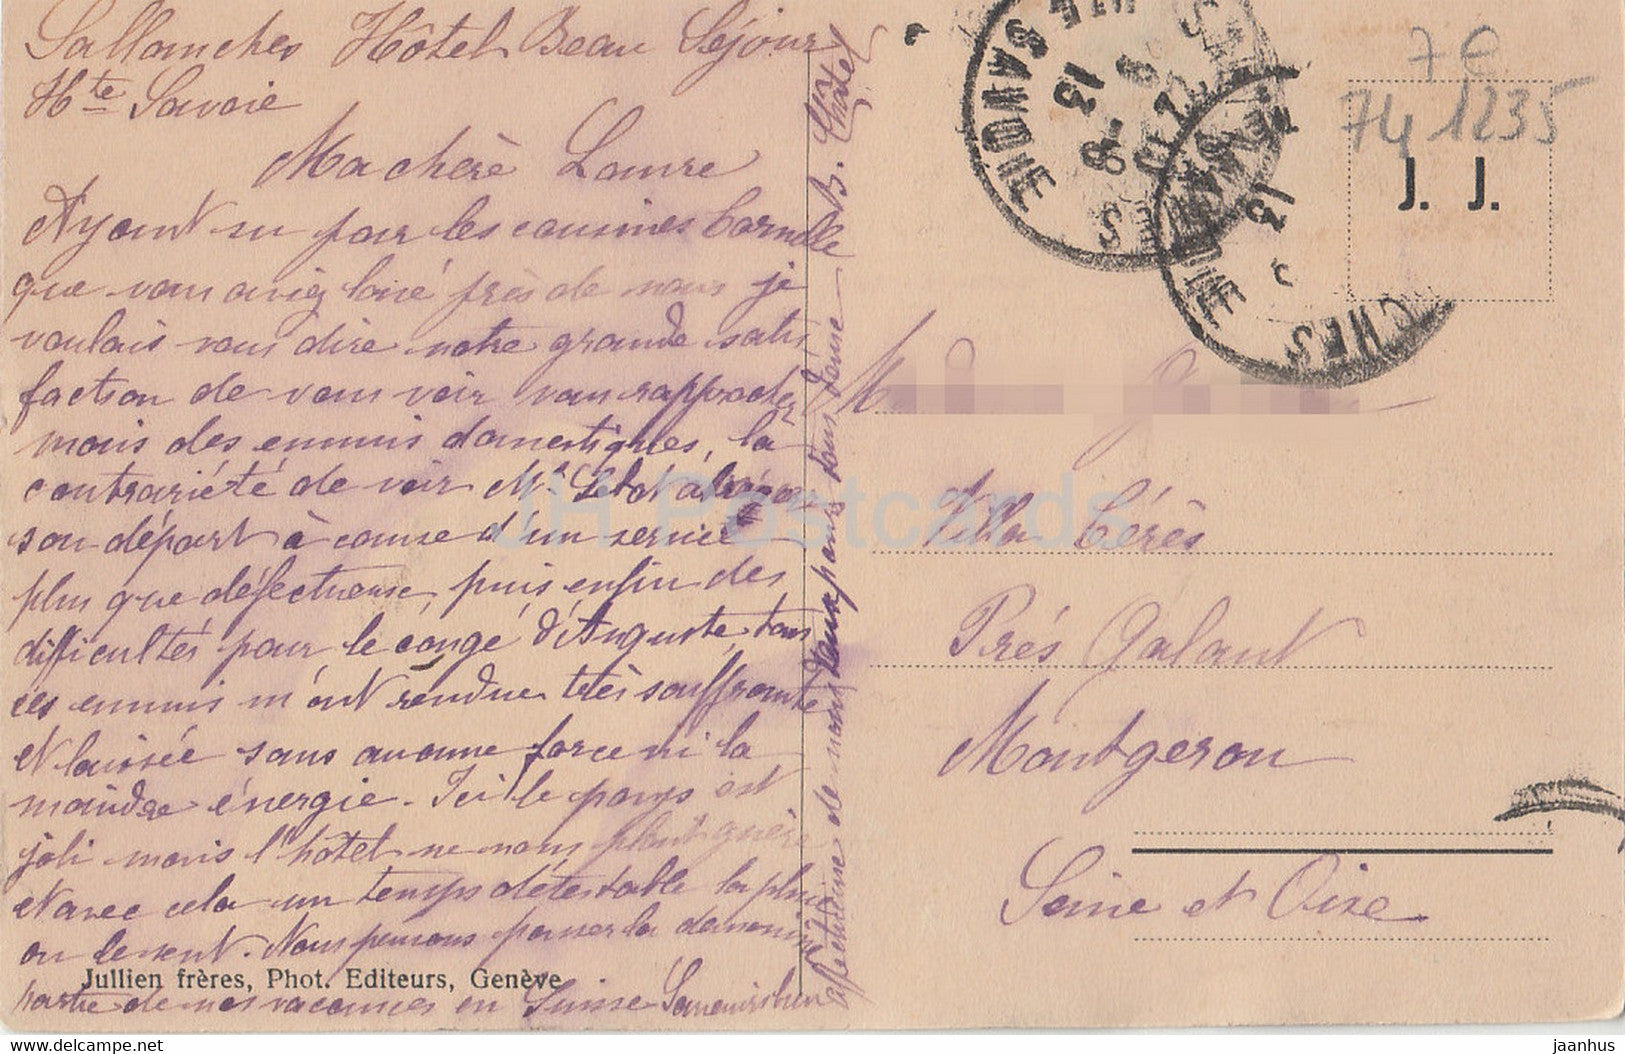 Sallanches Hôtel Beau Séjour
Hte Savoie
Ma chère Laure
Ayant su par les cousines Cornelle
que vous aviez loué près de nous je
voulais vous dire notre grande satis
faction de vous voir vous rapprocher
mais des ennuis domestiques, la
contrariété de voir Mr
son départ à cause d'un service
plus que défectueuse, puis enfin des
difficultés pour le congé d'Auguste, tous
ces ennuis m'ont rendue très souffrante
et laissée sans aucune force ni la
moindre énergie. Ici le pays est
joli mais l'hôtel ne nous plaît guère
et avec cela un temps détestable la pluie
ou le vent. Nous pensons passer la dernière
partie de nos vacances en Suisse Souvenirs bien
affectueux de nous deux pour tous deux B. Chatel
Jullien frères, Phot. Editeurs, Genève
7€
74 1235
J. J.
SALLANCHES
HTE SAVOIE
13
Villa Cérès
Prés Galant
Montgeron
Seine et Oise
JH Postcards
jaanhus